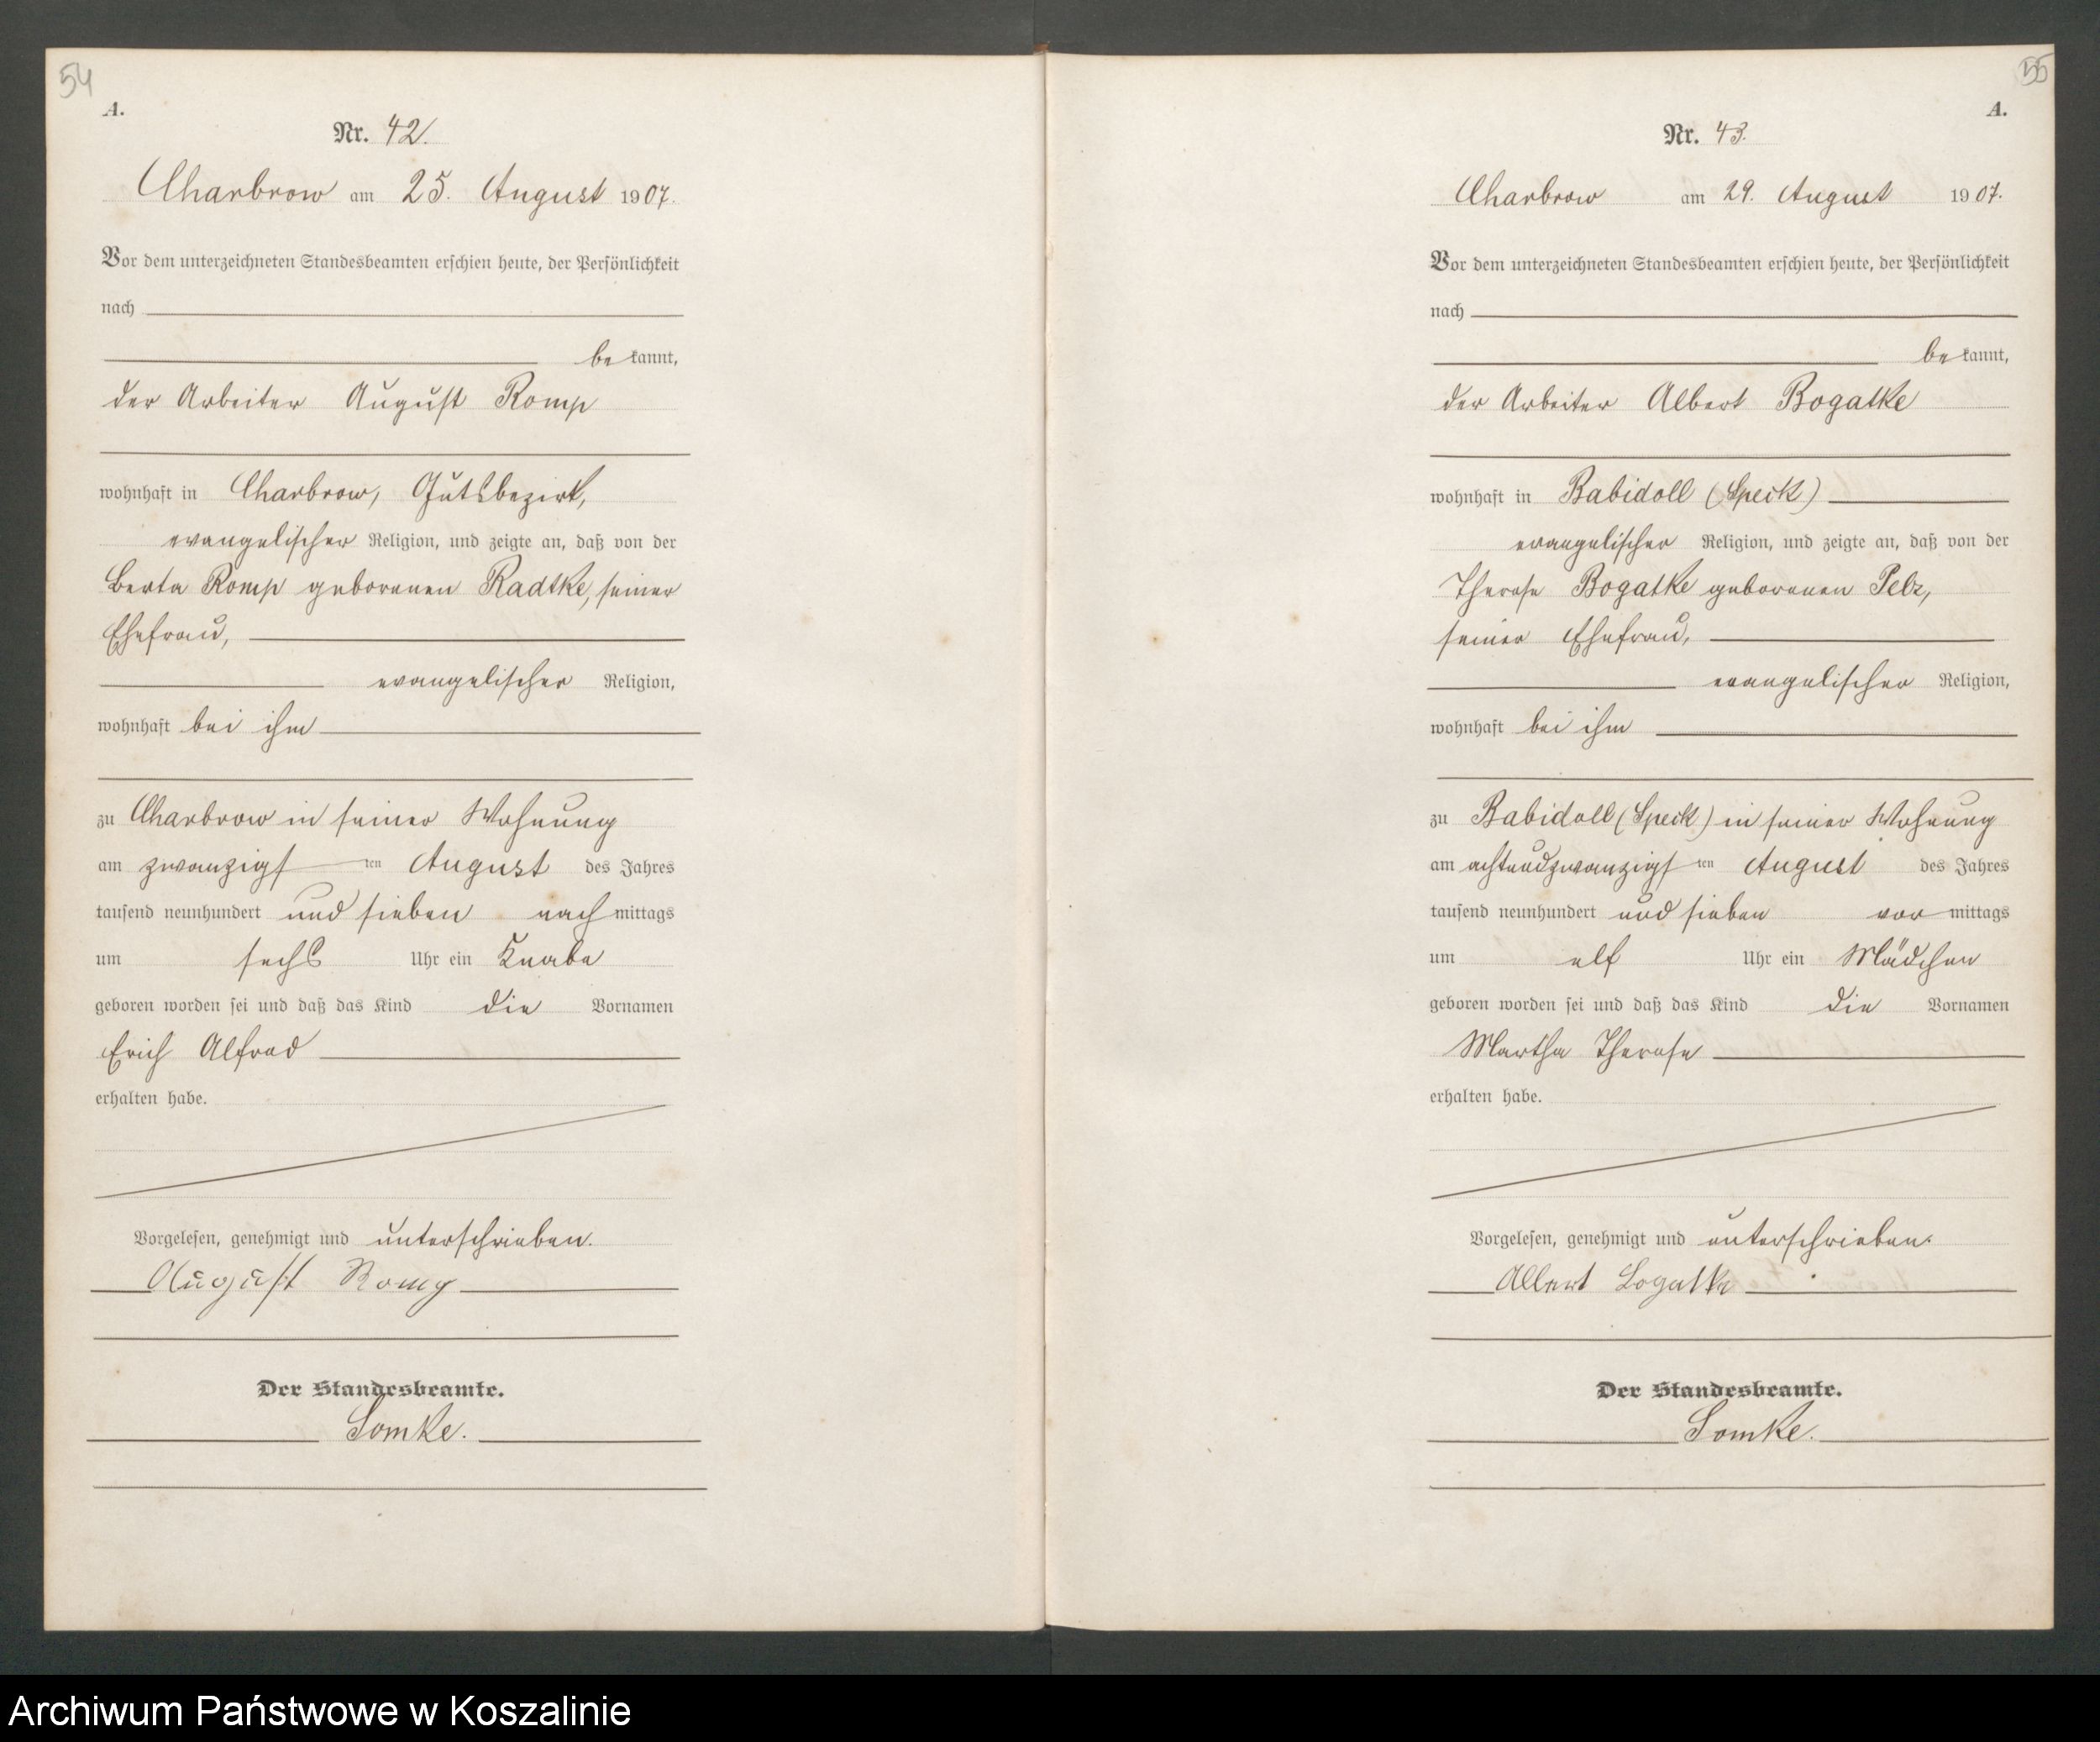 54
A.
Nr. 42.
Charbrow am 25. August 1907.
Vor dem unterzeichneten Standesbeamten erschien heute, der Persönlichkeit
nach
be kannt,
der Arbeiter August Romp
wohnhaft in Charbrow, Gutsbezirk,
evangelischer Religion, und zeigte an, daß von der
Berta Romp geborenen Radtke, seiner
Ehefrau,
evangelischer Religion,
wohnhaft bei ihm
zu Charbrow in seiner Wohnung
am zwanzigs ten August des Jahres
tausend neunhundert und sieben nach mittags
um sechs Uhr ein Knabe
geboren worden sei und daß das Kind die Vornamen
Erich Alfred
erhalten habe.
Vorgelesen, genehmigt und unterschrieben.
August Romp
Der Standesbeamte.
Somke.
55
A.
Nr. 43.
Charbrow am 29. August 1907.
Vor dem unterzeichneten Standesbeamten erschien heute, der Persönlichkeit
nach
be kannt,
der Arbeiter Albert Bogatke
wohnhaft in Babidoll (Speck)
evangelischer Religion, und zeigte an, daß von der
Therese Bogatke geborenen Pelz,
seiner Ehefrau,
evangelischer Religion,
wohnhaft bei ihm
zu Babidoll (Speck) in seiner Wohnung
am achtundzwanzigs ten August des Jahres
tausend neunhundert und sieben vor mittags
um elf Uhr ein Mädchen
geboren worden sei und daß das Kind die Vornamen
Martha Therese
erhalten habe.
Vorgelesen, genehmigt und unterschrieben.
Albert Bogatke
Der Standesbeamte.
Somke.
Archiwum Państwowe w Koszalinie